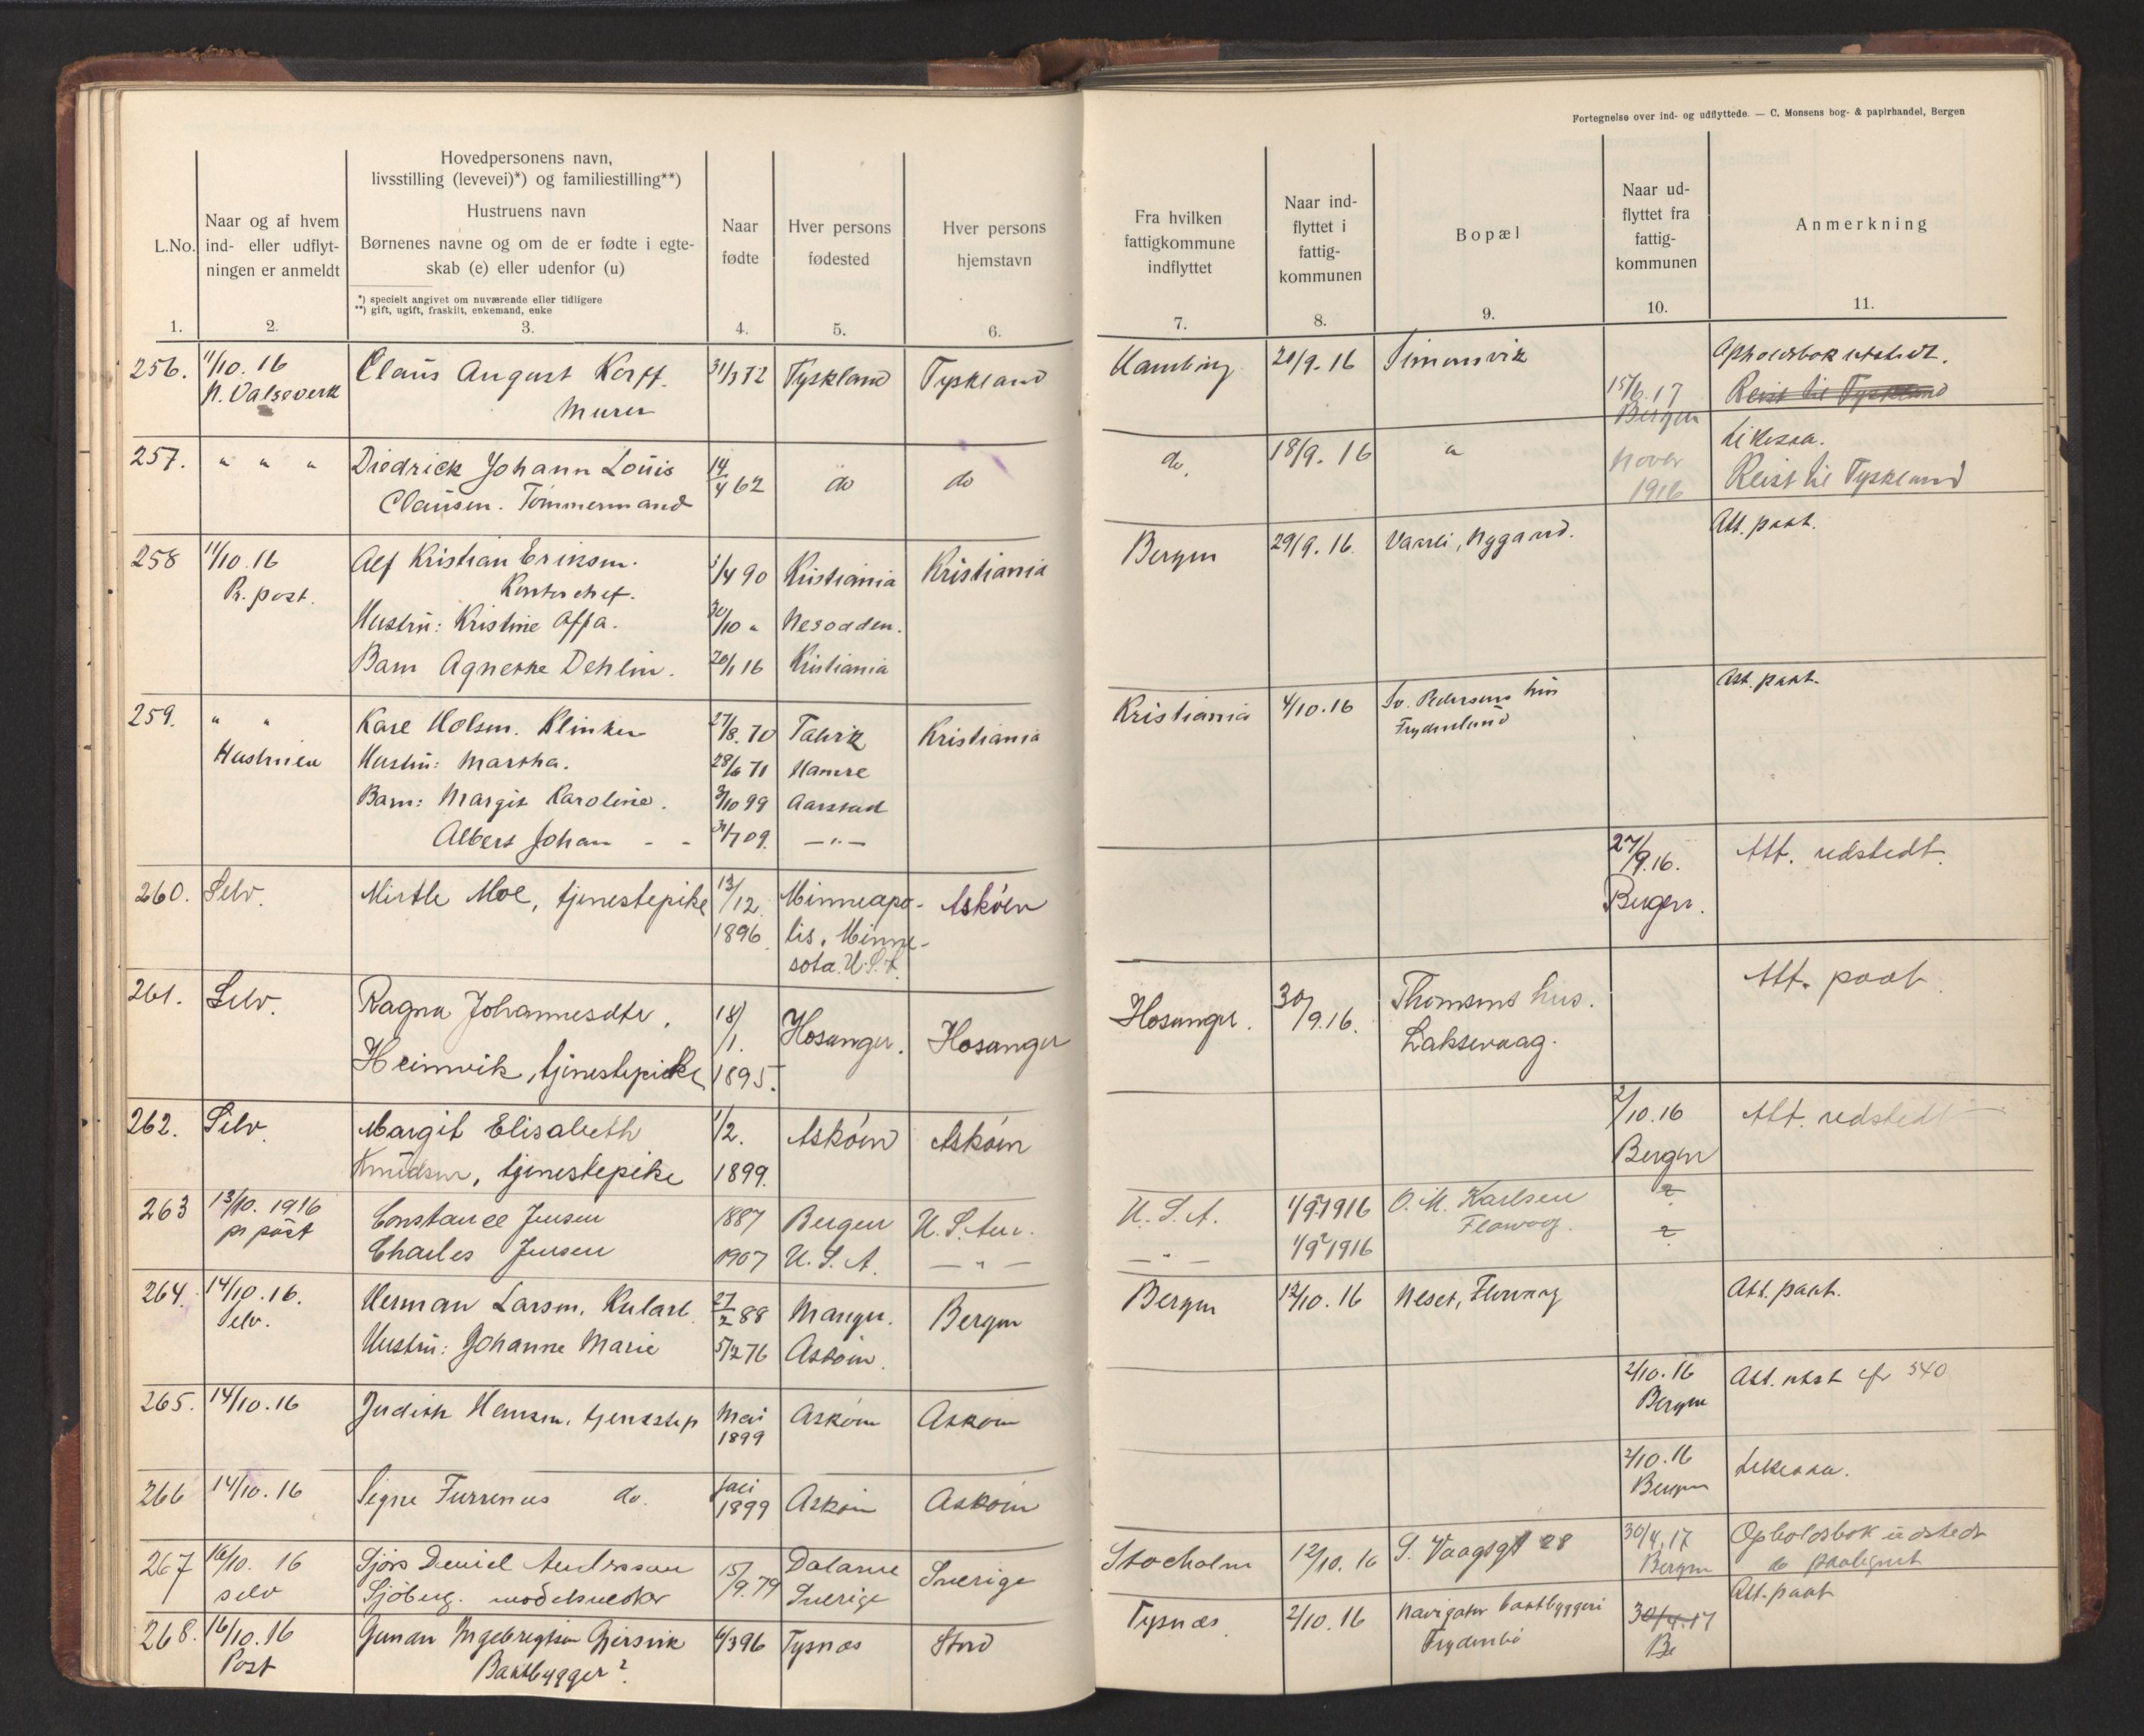 Fortegnelse over ind- og udflyttede. — C. Monsens bog- & papirhandel, Bergen
L.No.
1.
Naar og af hvem
ind- eller udflyt-
ningen er anmeldt
2.
Hovedpersonens navn,
livsstilling (levevei)*) og familiestilling**)
Hustruens navn
Børnenes navne og om de er fødte i egte-
skab (e) eller udenfor (u)
*) specielt angivet om nuværende eller tidligere
**) gift, ugift, fraskilt, enkemand, enke
3.
Naar
fødte
4.
Hver persons
fødested
5.
Hver persons
hjemstavn
6.
Fra hvilken
fattigkommune
indflyttet
7.
Naar ind-
flyttet i
fattig-
kommunen
8.
Bopæl
9.
Naar ud-
flyttet fra
fattig-
kommunen
10.
Anmerkning
11.
256. 11/10. 16 Claus August Korff. 31/3 72 Tyskland Tyskland Hamburg 20/9. 16 Simonsvik Opholdsbok utstedt.
N. Valseverk Murer 15/6. 17 Reist til Tyskland
Bergen
257. " " " Diedrick Johann Louis 14/4 62 do do do. 18/9. 16 " Novbr Likesaa.
Clausen. Tømmermand 1916 Reist til Tyskland
258 11/10. 16 Alf Kristian Eriksen. 1/4 90 Kristiania Kristiania Bergen 29/9. 16. Vaarli, Nygaard. Att. paat.
Pr. post. Kontorchef.
Hustru: Kristine Affa. 30/10 " Nesodden.
Barn Agnethe Dehlin. 20/1 16 Kristiania
259. " " Karl Holsen. Klinker 27/8. 70 Kristiania Kristiania 4/10. 16 Sv. Pedersens hus Att. paat.
Hustruen Hustru: Martha. 28/6 71 Hamre Frydenlund
Barn: Margit Karoline. 3/10 99 Aarstad
Albert Johan - - 31/7 09. — " —
260. Selv. Mirtle Moe, tjenestepike 13/12. 1896. Minneapo- Askøen 27/9. 16. Att. udstedt.
lis, Minne- Bergen.
sota. U.S.A.
261. Selv. Ragna Johannesdtr. 18/1. 1895. Hosanger. Hosanger Hosanger. 30/9. 16. Thomsens hus. Att. paat.
Heimvik, tjenestepike Laksevaag.
262. Selv. Margit Elisabeth 1/2. 1899. Askøen Askøen 2/10. 16 Att. udstedt
Knudsen, tjenestepike Bergen
263 13/10. 1916 Constance Jensen 1887 Bergen U.S.Am. U.S.A. 1/9 1916 O. M. Karlsen ?
pr post Charles Jensen 1907 U.S.A. — " — — " — 1/9 1916 Flowaag. ?
264. 14/10. 16. Herman Larsen, Kularb. 27/2 88 Manger. Bergen Bergen 12/10. 16 Neset, Florvaag Att. paat.
Selv. Hustru: Johanne Marie 5/2 76 Askøen.
265. 14/10. 16 Judith Hansen, tjenestep Mai 1899 Askøen Askøen 2/10. 16 Att. utst cfr 540
Bergen
266 14/10. 16 Signe do. Juli 1899 Askøen Askøen 2/10. 16 Likesaa.
Bergen
267 16/10. 16 Sjørs Daniel Andersson 15/9. 79 Dalarne Sverige Stocholm 12/10. 16 S. Vaagsgt 28 30/4. 17 Opholdsbok udstedt
selv Sjöberg. modelsnedker Sverige Bergen do paategnet
268. 16/10. 16 Gunnar Ingebregtsen Gjersvik 6/3 96 Tysnæs Stord Tysnæs 2/10. 16 Navigatør baatbyggeri 30/4. 17 Att. paat
Post Baatbygger? Frydenbø Be